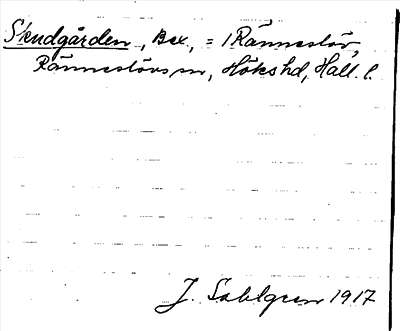 Stendgården, Bex., = 1 Ränneslöv,
Ränneslövs sn, Höks hd, Hall. l.
J. Sahlgren 1917